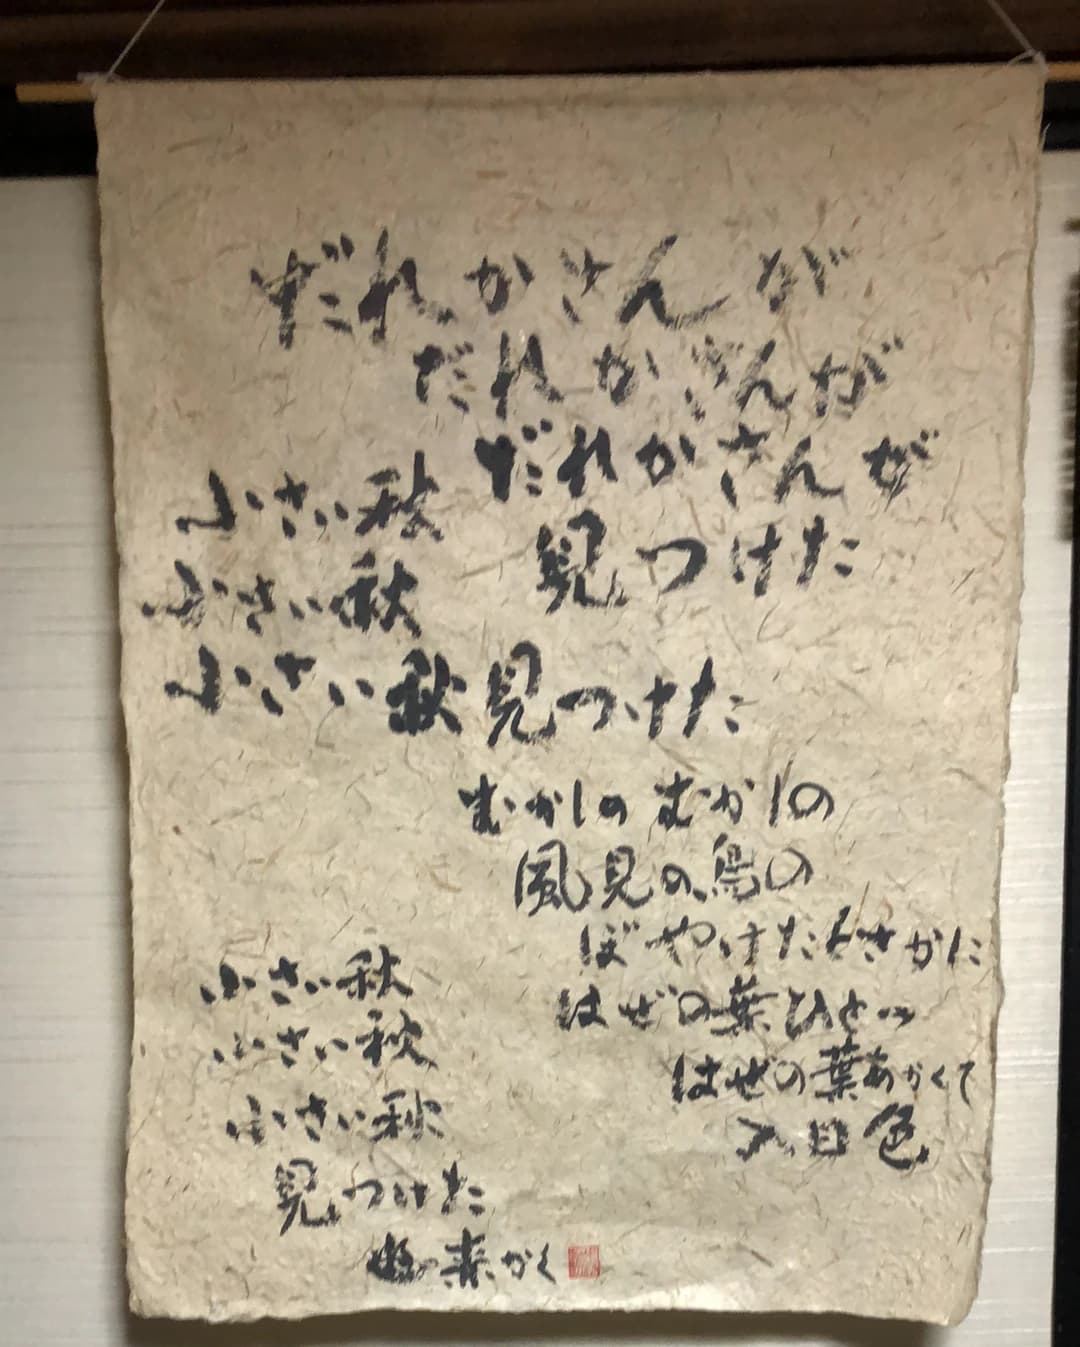 だれかさんが
だれかさんが
だれかさんが
見つけた
小さい秋
小さい秋
小さい秋見つけた
むかしのむかしの
風見の鳥の
ぼやけたとさかに
はぜの葉ひとつ
はぜの葉あかくて
入日色
小さい秋
小さい秋
小さい秋
見つけた
かく